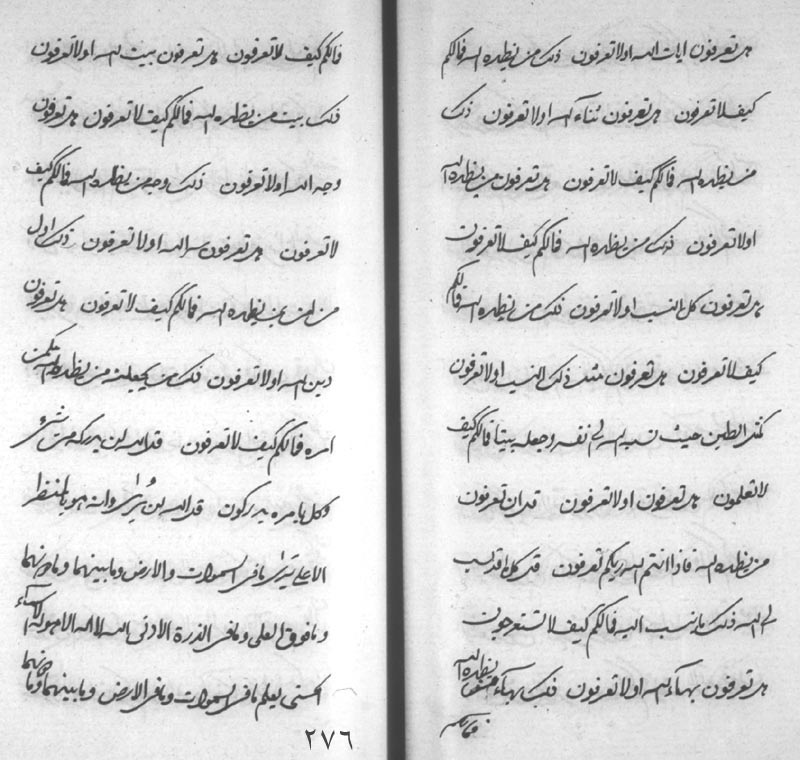 هل تعرفون ايات الله او لا تعرفون ذلك من يظهره الله فمالكم
كيف لا تعرفون هل تعرفون ثناء الله او لا تعرفون ذلك
من يظهره الله فمالكم كيف لا تعرفون هل تعرفون من يظهره الله
او لا تعرفون ذلك من يظهره الله فمالكم كيف لا تعرفون
هل تعرفون كل النسب او لا تعرفون ذلك من يظهره الله فمالكم
كيف لا تعرفون هل تعرفون مثل ذلك النسب او لا تعرفون
كمثل الطين حيث نسب الله الى نفسه وجعله بيتا فمالكم كيف
لا تعلمون هل تعرفون او لا تعرفون قل ان تعرفون
من يظهره الله فاذا انتم الله ربكم تعرفون قل كل قد نسب
الى الله ذلك ما نسب اليه فمالكم كيف لا تستعرجون
هل تعرفون بهاء الله او لا تعرفون ذلك بهاء من يظهره الله
فمالكم
فمالكم كيف لا تعرفون هل تعرفون بيت الله او لا تعرفون
ذلك بيت من يظهره الله فمالكم كيف لا تعرفون هل تعرفون
وجه الله او لا تعرفون ذلك وجه من يظهره الله فمالكم كيف
لا تعرفون هل تعرفون الله او لا تعرفون ذلك اول
من امن بمن يظهره الله فمالكم كيف لا تعرفون هل تعرفون
دين الله او لا تعرفون ذلك من يظهره الله
امره فمالكم كيف لا تعرفون قل الله لن يدركه من شيء
وكل بامره يدركون قل الله لن يرى وانه هو بالمنظر
الاعلى يرى ما فى السموات والارض وما بينهما وما دونهما
وما فوق العلى وما فى الذرة الادنى الله لا اله الا هو له الاسماء
الحسنى يعلم ما فى السموات وما فى الارض وما بينهما وما دونهما
٢٧٦